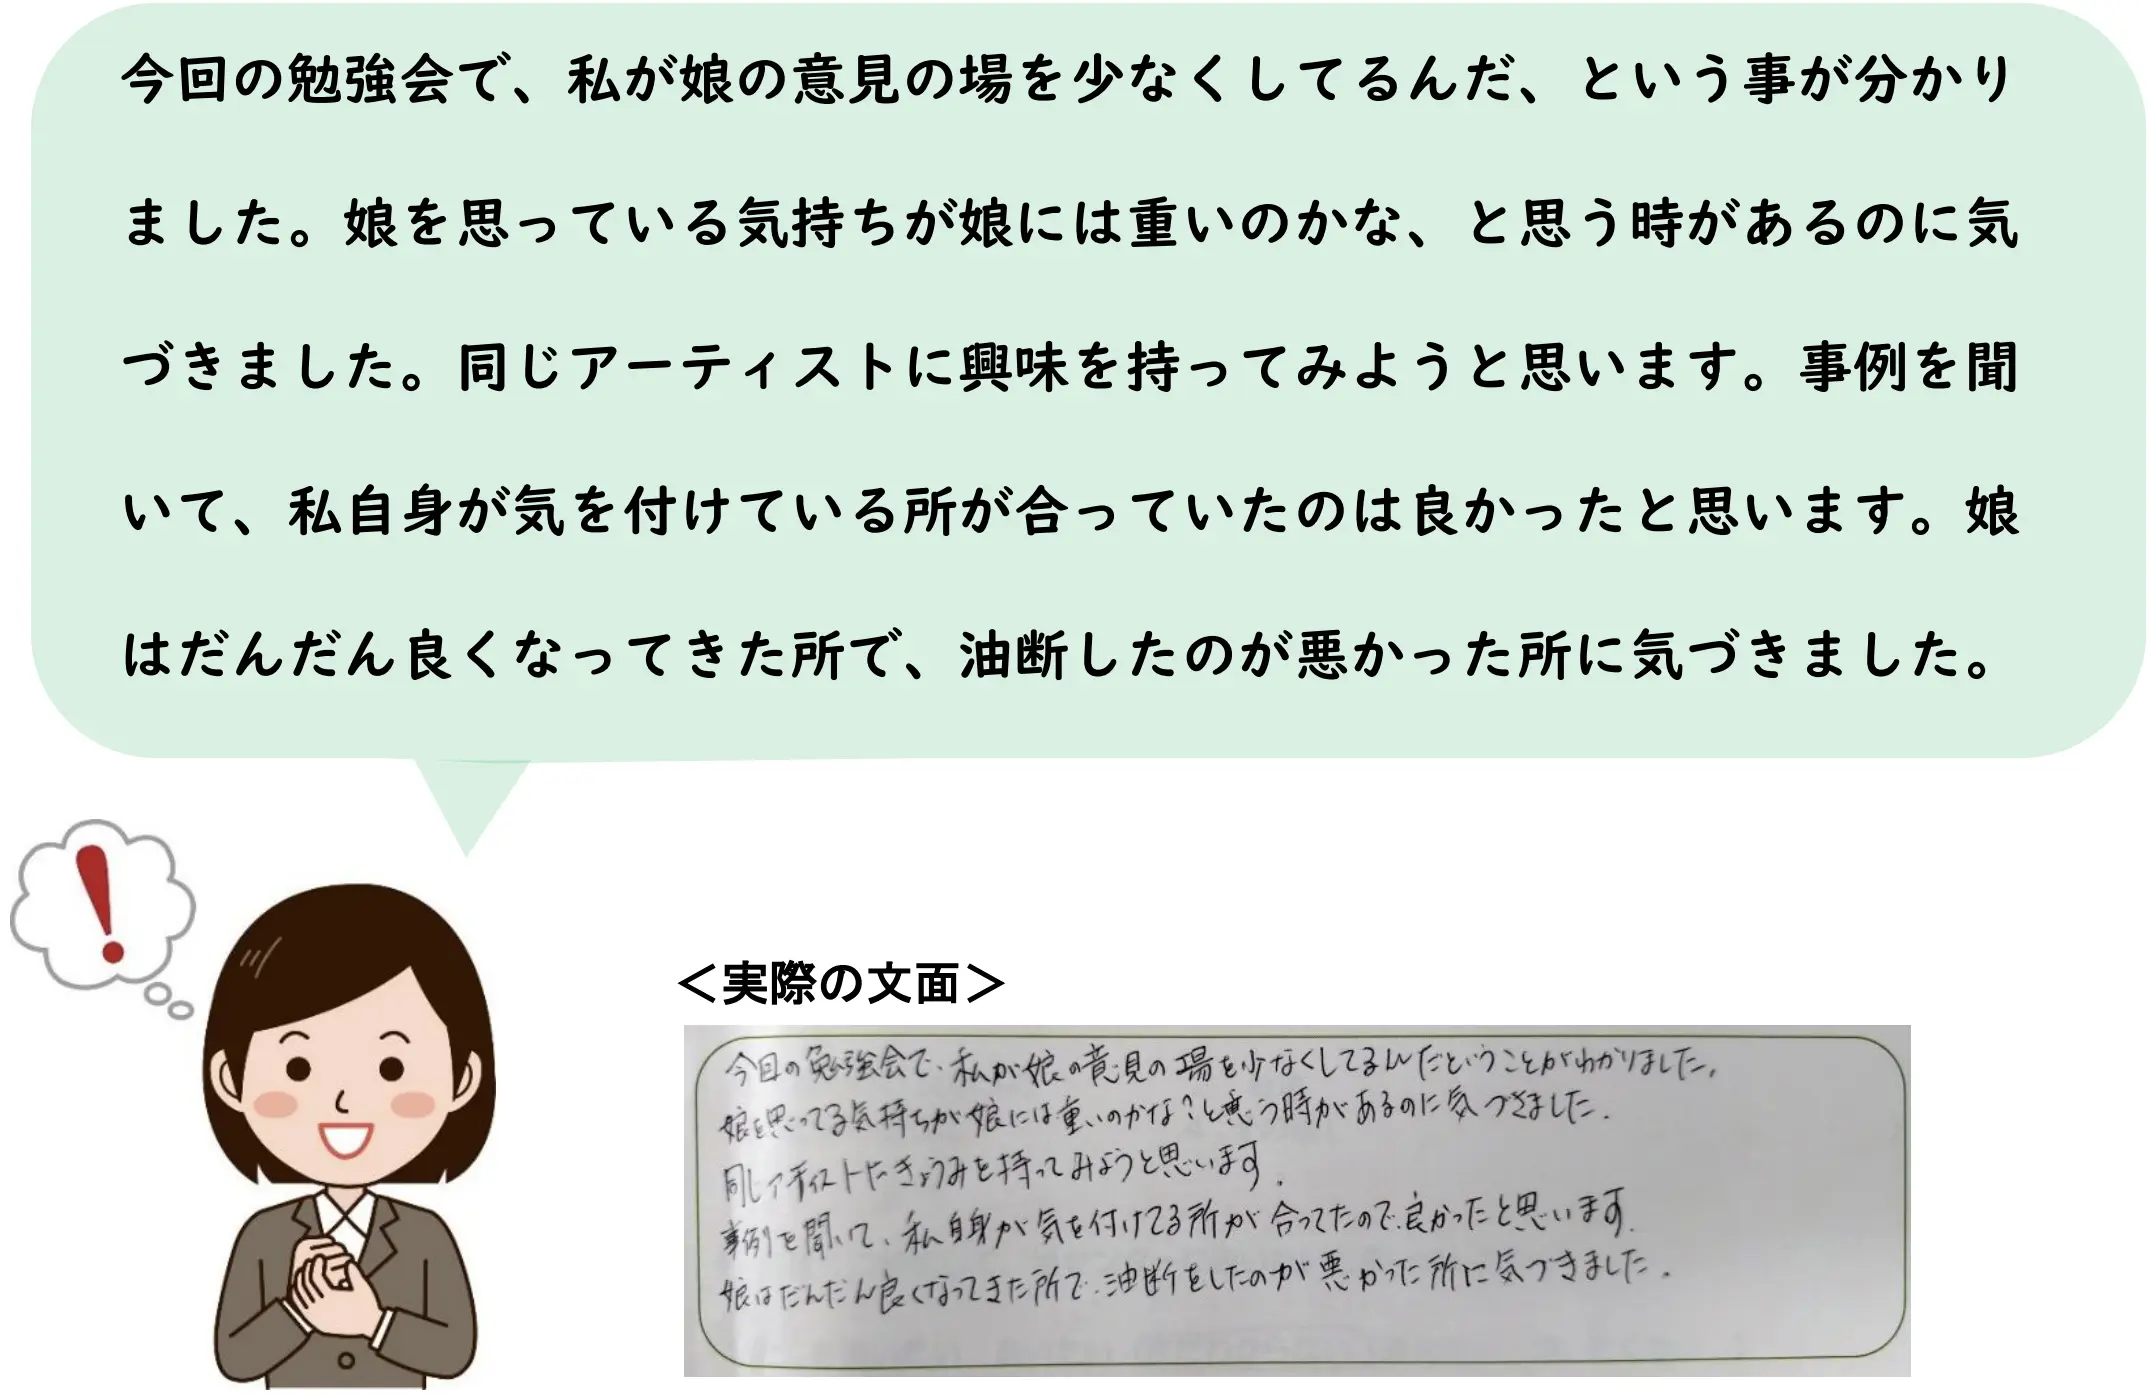 今回の勉強会で、私が娘の意見の場を少なくしてるんだ、という事が分かり
ました。娘を思っている気持ちが娘には重いのかな、と思う時があるのに気
づきました。同じアーティストに興味を持ってみようと思います。事例を聞
いて、私自身が気を付けている所が合っていたのは良かったと思います。娘
はだんだん良くなってきた所で、油断したのが悪かった所に気づきました。
＜実際の文面＞
今回の勉強会で、私が娘の意見の場を少なくしてるんだということがわかりました。
娘を思ってる気持ちが娘には重いのかな？と思う時があるのに気づきました。
同じアーティストにきょうみを持ってみようと思います。
事例を聞いて、私自身が気を付けてる所が合ってたので、良かったと思います。
娘はだんだん良くなってきた所で、油断をしたのが悪かった所に気づきました。